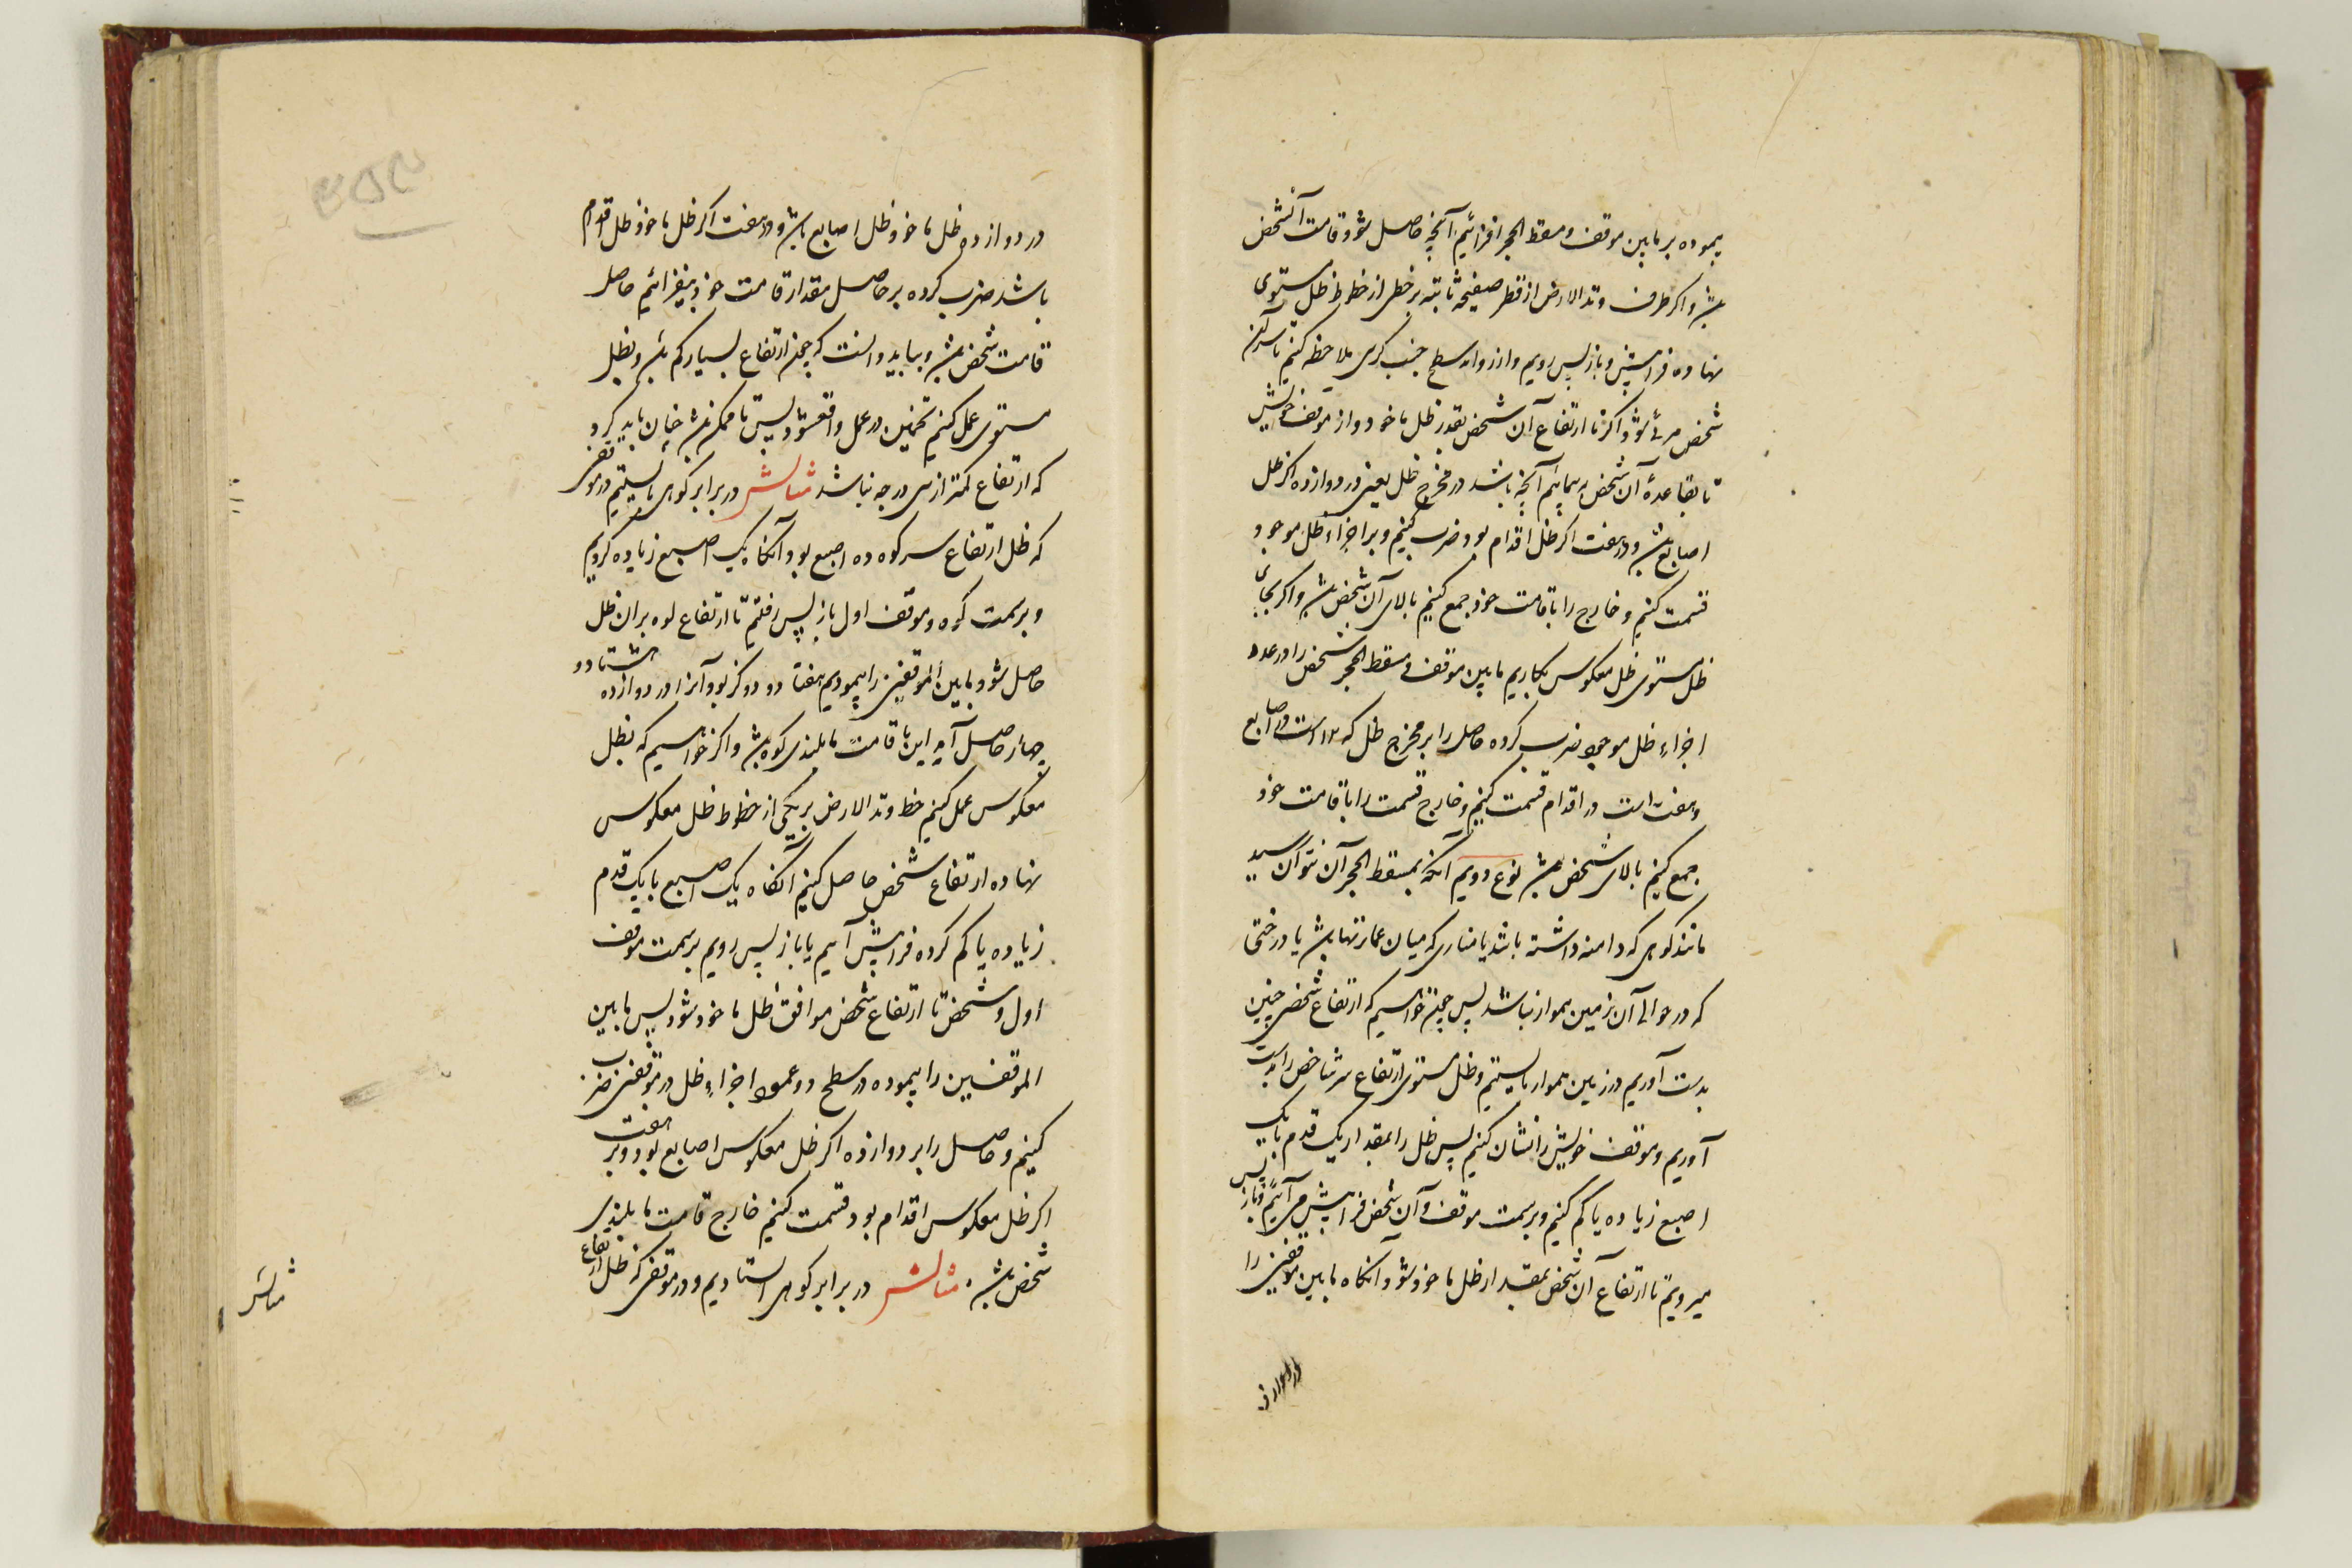 پیموده بر مابین موقف و مسقط الحجر افزائیم آنچه حاصل شود قامت آنشخص
باشد و اکر طرف وتد الارض از قطر صفیحه ثابته بر خطی از خطوط ظل مستوی
نهاده فرا پیش و باز پس رویم و از دو سطح جنب کرسی ملاحظه کنیم تا سر آن
شخص مرئی شود اکر تا ارتفاع آن شخص بقدر ظل ماخوذ و از موقف خویش
تا بقاعدهٔ آن شخص پیمائیم آنچه باشد در مخرج ظل یعنی در دوازده اکر ظل
اصابع باشد و در هفت اکر ظل اقدام بود ضرب کنیم و بر اجزاء ظل موجود
قسمت کنیم و خارج را با قامت خود جمع کنیم بالای آن شخص باشد و اکر بجای
ظل مستوی ظل معکوس بکاریم مابین موقف و مسقط الحجر شخص را در عدد
اجزاء ظل موجود ضرب کرده حاصل را بر مخرج ظل که ۱۲ است در اصابع
و هفت است در اقدام قسمت کنیم و خارج قسمت را با قامت خود
جمع کنیم بالای شخص باشد نوع دویم آنکه بمسقط الحجر آن نتوان رسید
مانند کوهی که دامنه داشته باشد یا مناری که میان عمارتها باشد یا درختی
که در حوالی آن زمین هموار نباشد پس چون خواهیم که ارتفاع شخص چنین
بدست آوریم در زمین هموار بایستیم و ظل مستوی ارتفاع سر شاخص را بدست
آوریم و موقف خویش را نشان کنیم پس ظل را بمقدار یک قدم یا یک
اصبع زیاده یا کم کنیم و بر سمت موقف و آن شخص فرا پیش می آئیم و باز پس
میرویم تا ارتفاع آن شخص بمقدار ظل ماخوذ شود و آنکاه مابین موقفین را
در دوازده ظل ماخوذ ظل اصابع باشد و در هفت اکر ظل ماخوذ ظل اقدام
باشد ضرب کرده بر حاصل مقدار قامت خود بیفزائیم حاصل
قامت شخص باشد و بباید دانست که چون ارتفاع بسیار کم باشد و بظل
مستوی عمل کنیم تخمین در عمل واقع شود پس تا ممکن باشد چنان باید کرد
که ارتفاع کمتر از سی درجه نباشد مثالش در برابر کوهی بایستیم در موقفی
که ظل ارتفاع سر کوه ده اصبع بود آنکاه یک اصبع زیاده کردیم
و بر سمت کوه و موقف اول باز پس رفتیم تا ارتفاع کوه بر ان ظل
حاصل شود مابین الموقفین را پیمودیم هفتاد و دو کز بود آنرا در دوازده هشتاد و
چهار حاصل آمد این با قامت ما بلندی کوه باشد و اکر خواهیم که بظل
معکوس عمل کنیم خط وتد الارض بر یکی از خطوط ظل معکوس
نهاده ارتفاع شخص حاصل کنیم آنکاه یک اصبع یا یک قدم
زیاده یا کم کرده فرا پیش آییم یا باز پس رویم بر سمت موقف
اول و شخص تا ارتفاع شخص موافق ظل ماخوذ شود پس مابین
الموقفین را پیموده در سطح دو عمود اجزاء ظل در موقفین ضرب
کنیم و حاصل را بر دوازده اکر ظل معکوس اصابع بود و بر هفت
اکر ظل معکوس اقدام بود قسمت کنیم خارج قامت ما بلندی
شخص باشد مثالش در برابر کوهی ایستادیم و در موقفی که ظل ارتفاع
مثالش